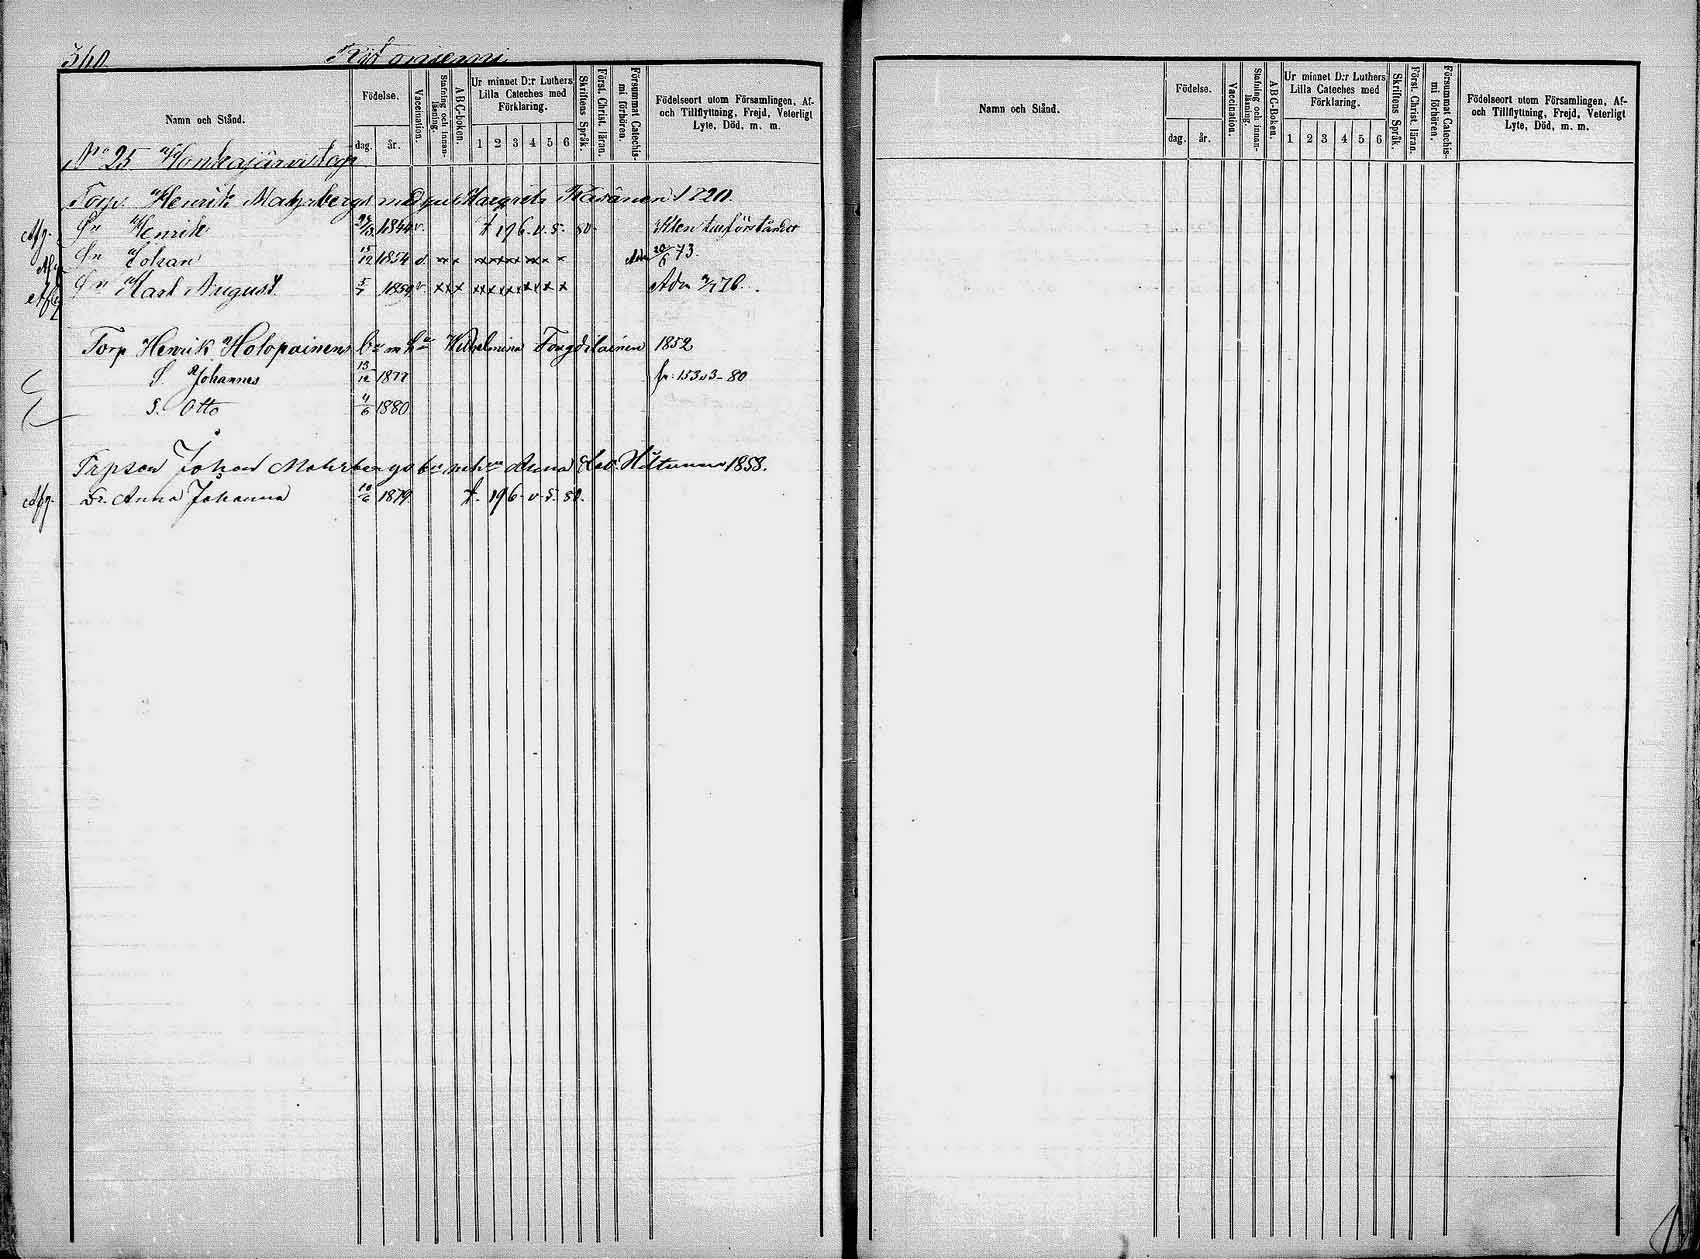 360
Namn och Stånd.
Födelse.
dag.
år.
Vaccination.
Stafning och innan-
läsning.
ABC-boken.
Ur minnet D:r Luthers
Lilla Cateches med
Förklaring.
1 2 3 4 5 6
Skriftens Språk.
Först. Christ. läran.
Försummat Catechis-
mi förhören.
Födelseort utom Församlingen, Af-
och Tillflyttning, Frejd, Veterligt
Lyte, Död, m. m.
No 25 Honkajärvi torp
Torp. Henrik Margareta Räsänen 1820.
Afg. Sn Henrik 1844 v. t. 196. v. 5. 80.
Sn Johan 15/12 1854 v x x x x x x x x x 20/6 73.
Sn Karl August 5/7 1859 v x x x x x x x x x Adm 76.
Torp Henrik Holopainens Wilhelmina 1852
S. Johannes 13/12 1877 fr. 153 v 3-80
S. Otto 4/6 1880
Trpson Johan Anna Hiltunen 1858.
Afg. Dr. Anna Johanna 10/6 1879 t. 196. v. 5. 80.
Namn och Stånd.
Födelse.
dag.
år.
Vaccination.
Stafning och innan-
läsning.
ABC-Boken.
Ur minnet D:r Luthers
Lilla Cateches med
Förklaring.
1 2 3 4 5 6
Skriftens Språk.
Först. Christ. läran.
Försummat Catechis-
mi förhören.
Födelseort utom Församlingen, Af-
och Tillflyttning, Frejd, Veterligt
Lyte, Död, m. m.